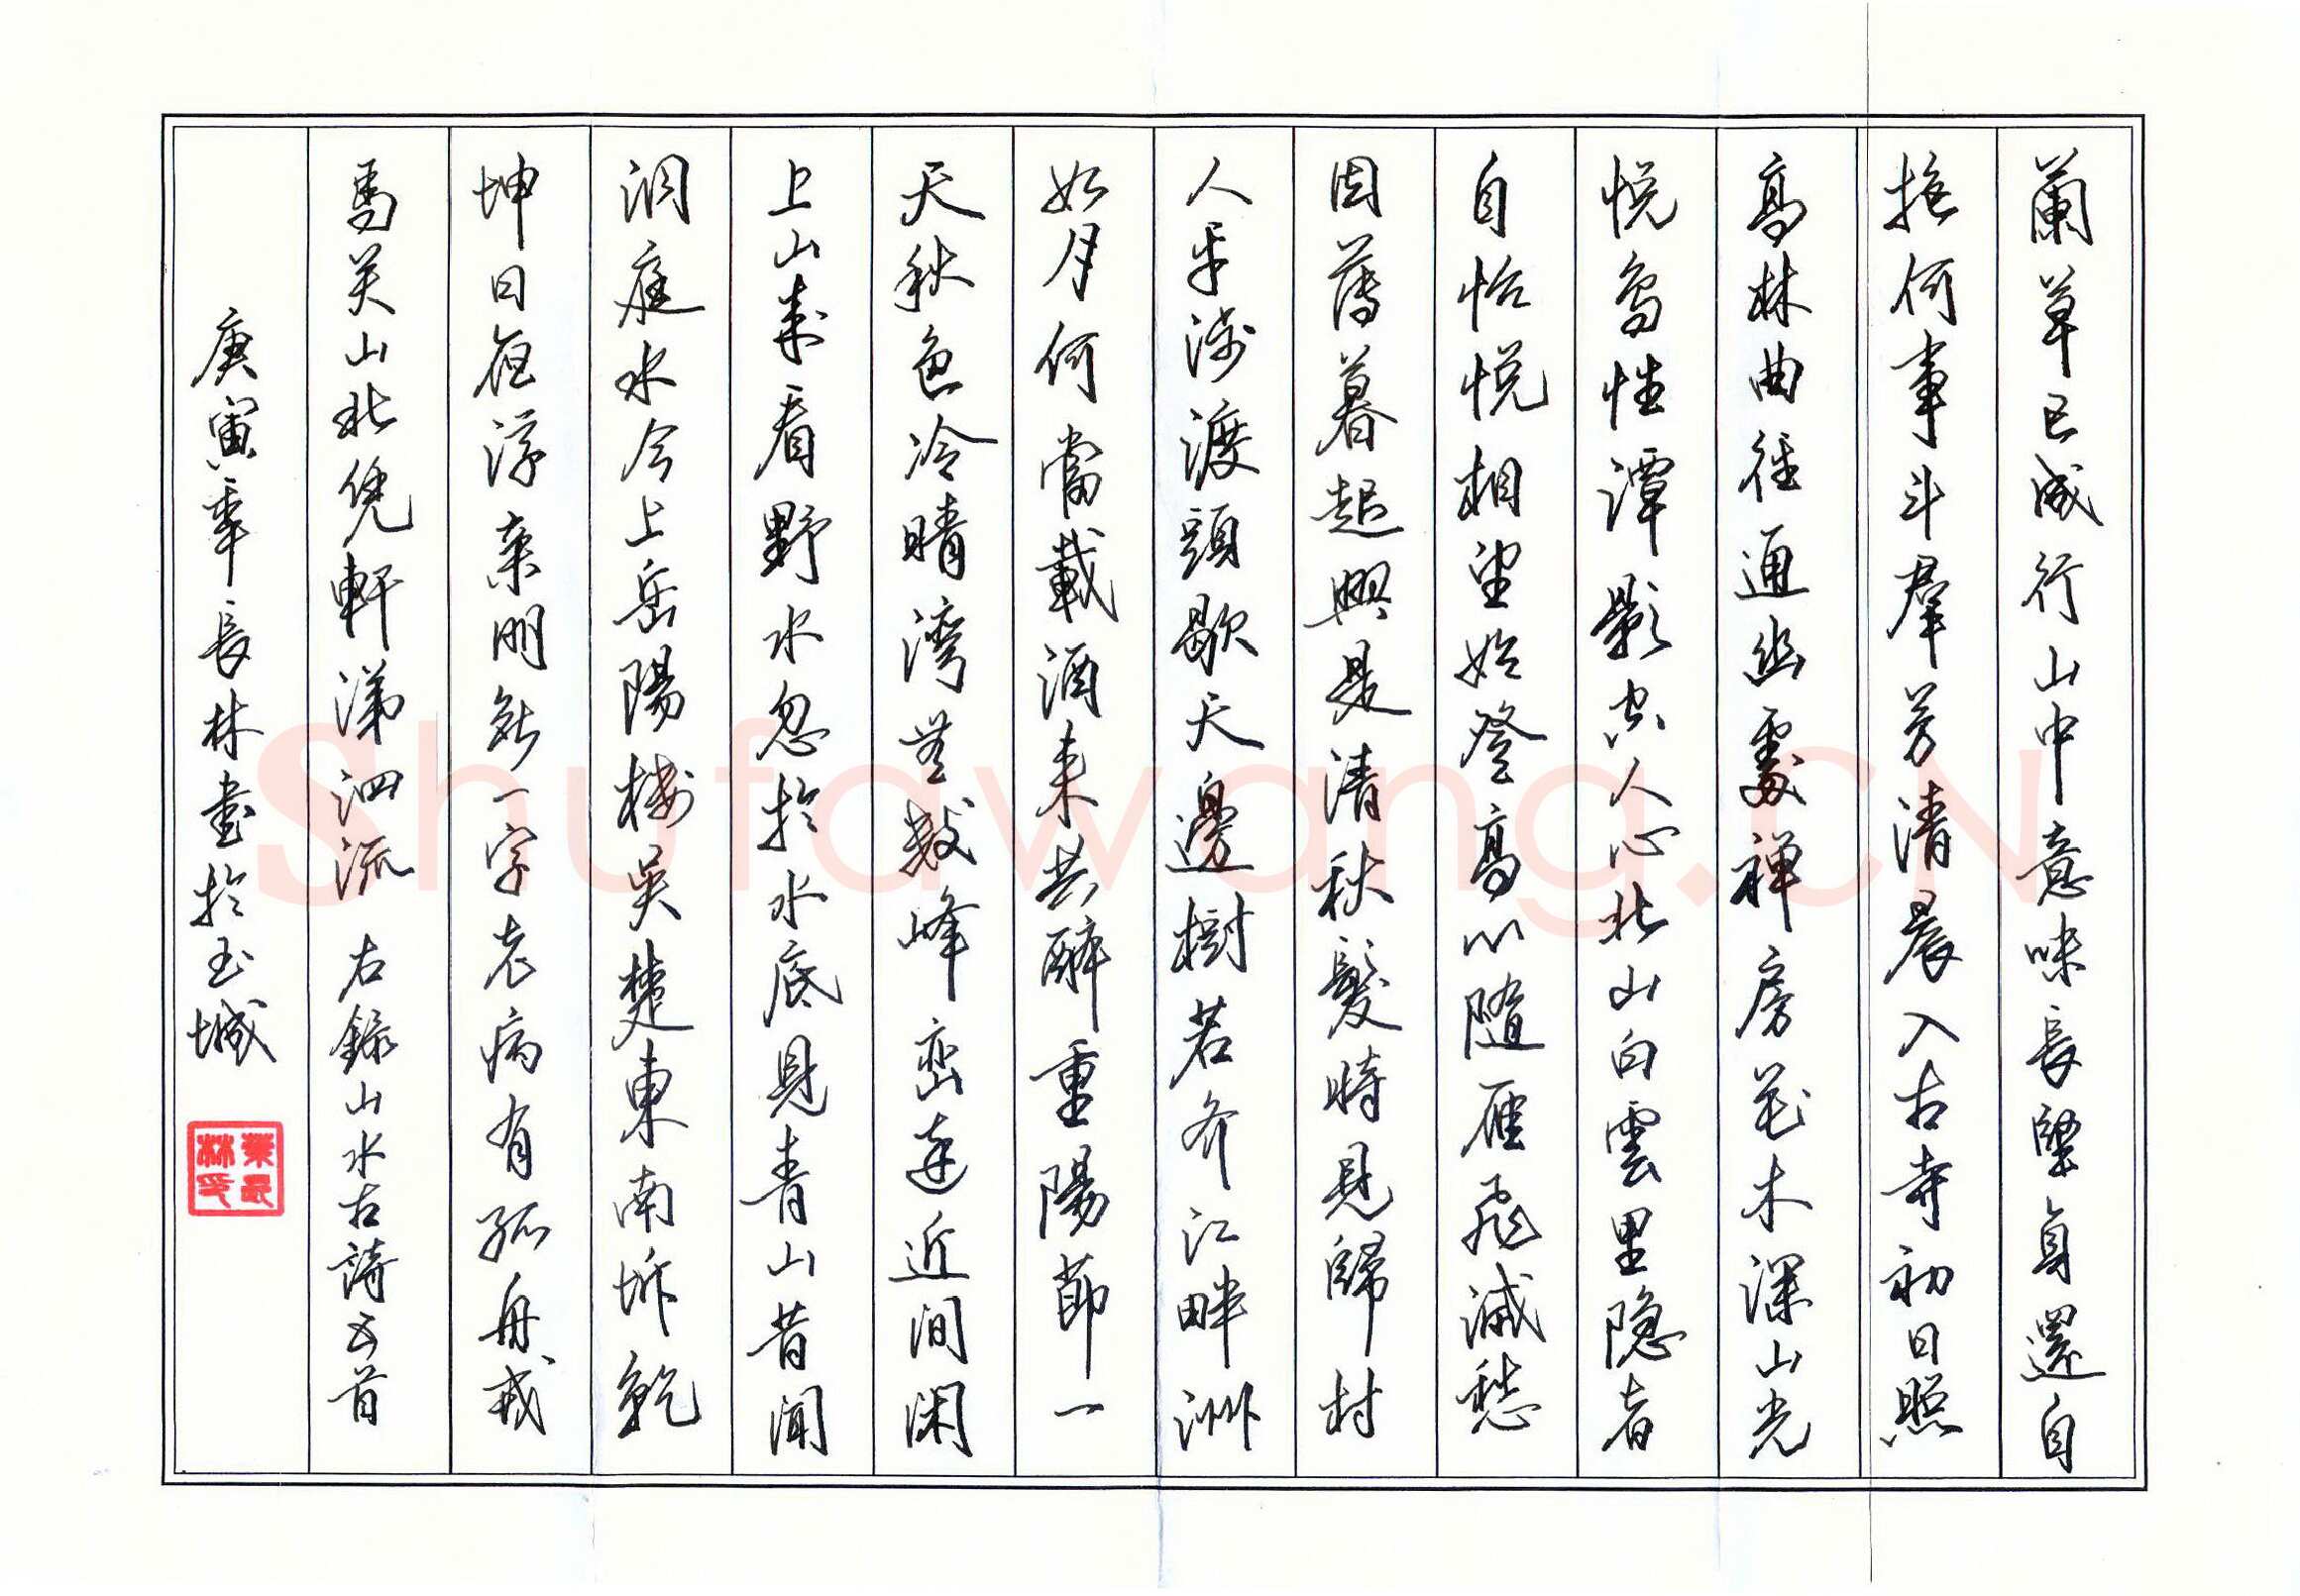 蘭草已成行山中意味長堅身還自
抱何事斗羣芳清晨入古寺初日照
高林曲徑通幽處禪房花木深山光
悅鳥性潭影空人心北山白雲里隱者
自怡悅相望始登高心隨雁飛滅愁
因薄暮起興是清秋髮時見歸村
人平沙渡頭歇天邊樹若江畔洲
如月何當載酒來共醉重陽節一
天秋色冷晴灣無數峰巒遠近間閑
上山來看野水忽於水底見青山昔聞
洞庭水今上岳陽樓吳楚東南坼乾
坤日夜浮親朋無一字老病有孤舟戎
馬关山北凭軒涕泗流 右錄山水古詩五首
庚寅年長林書於玉城
葉長林印
Shufawang.CN